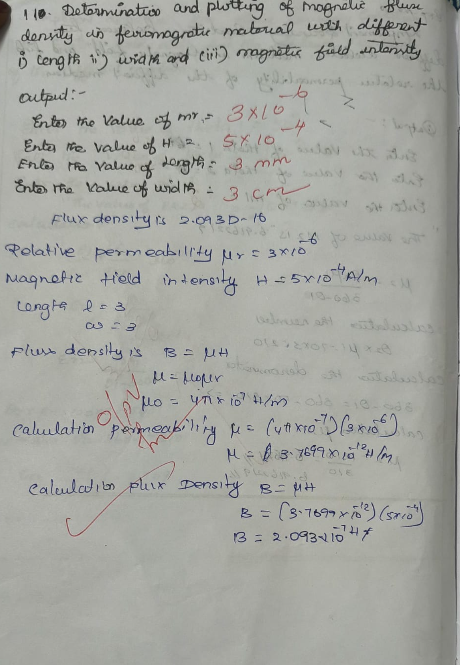 110. Determination and plotting of magnetic flux
density in ferromagnetic material with different
i) length ii) width and (iii) magnetic field intensity
output:-
Enter the Value of mr = 3x10^-6
Enter the Value of H = 5x10^-4
Enter the Value of Length = 3 mm
Enter the Value of width = 3 cm
Flux density is 2.093D-16
Relative permeability μr = 3x10^-6
Magnetic field intensity H = 5x10^-4 A/m
Length l = 3
w = 3
Flux density is B = μH
μ = μ0μr
μ0 = 4π x 10^-7 H/m
Calculation permeability μ = (4π x 10^-7) (3x10^-6)
μ = 3.7699 x 10^-12 H/m
Calculation flux Density B = μH
B = (3.7699 x 10^-12) (5x10^-4)
B = 2.093x10^-7